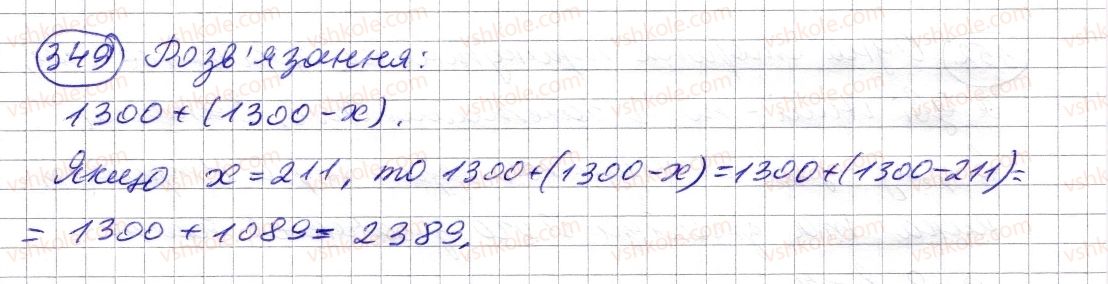 349 Розв'язання:
1300+(1300-x).
Якщо x=211, то 1300+(1300-x)=1300+(1300-211)=
= 1300+1089= 2389.